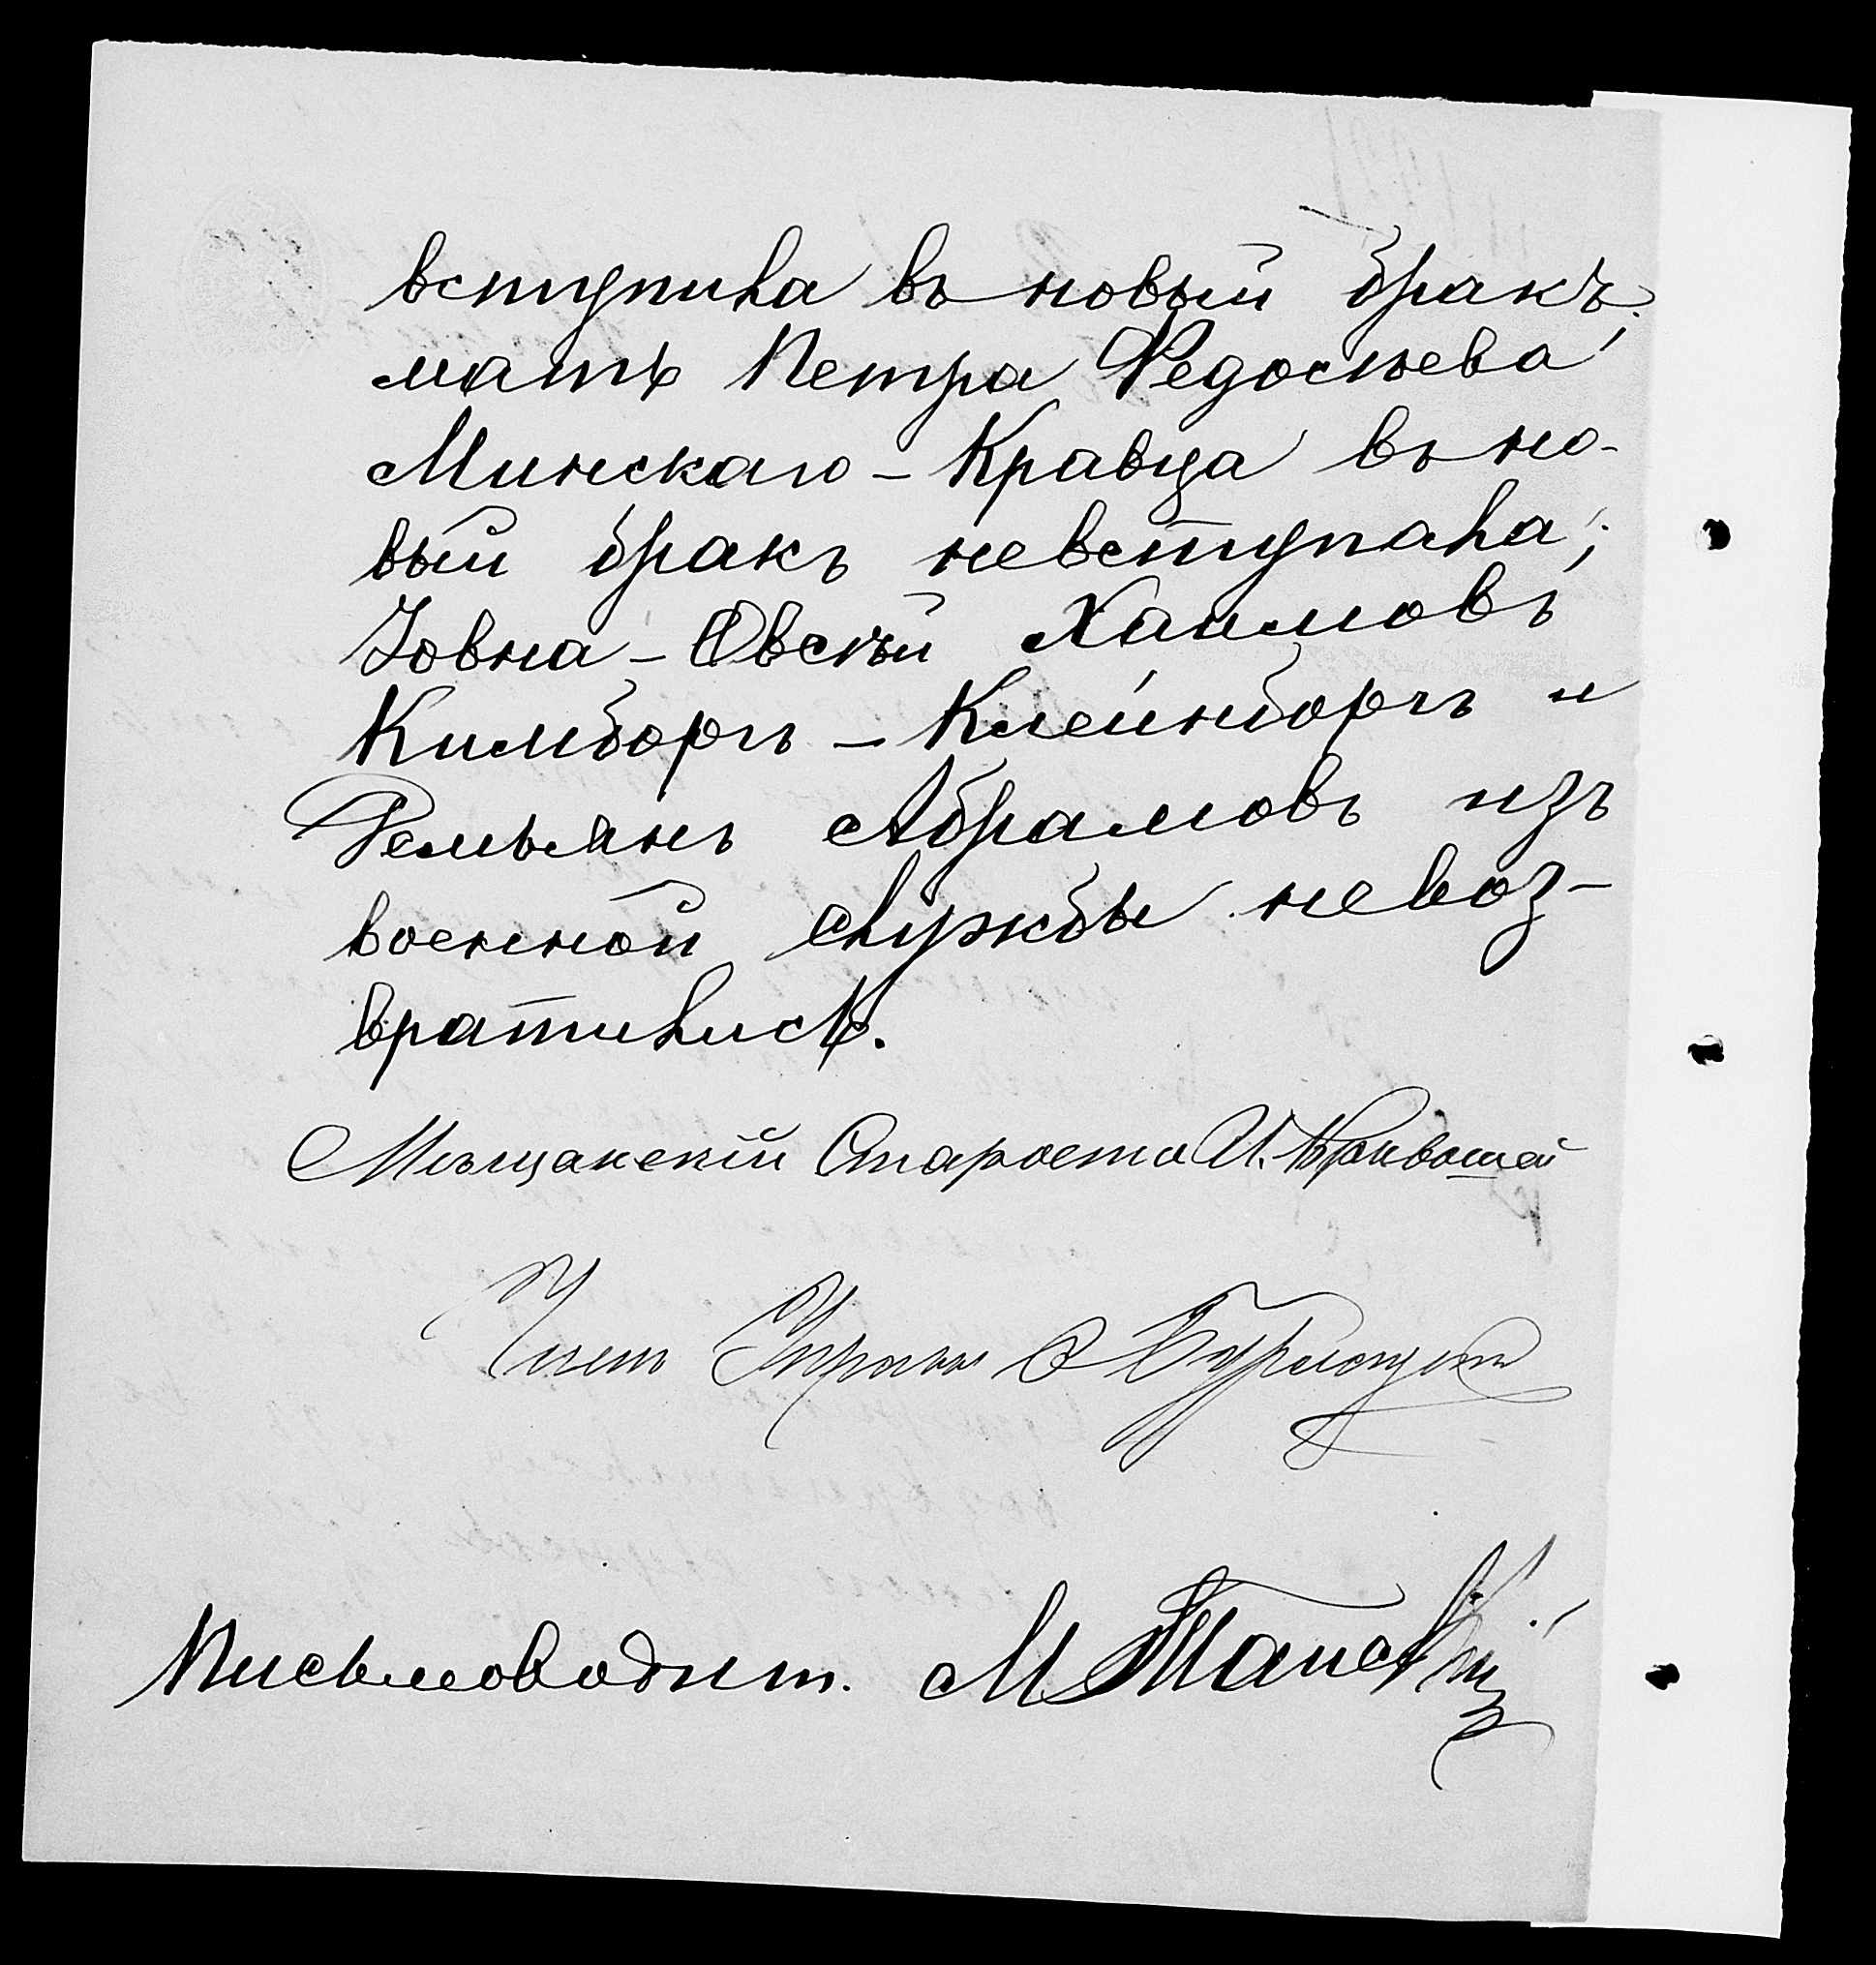 вступила въ новый бракъ;
мать Петра Федосѣева
Минскаго-Кравца въ но-
вый бракъ невступала;
Іовна-Овсѣй Хаимовъ
Кимборгъ-Клейнборгъ и
Демьянъ Абрамовъ изъ
военной службы невоз-
вратились.
Мѣщанскій Староста И. Кривошей
Членъ Управы
Письмоводит. М. Танскій